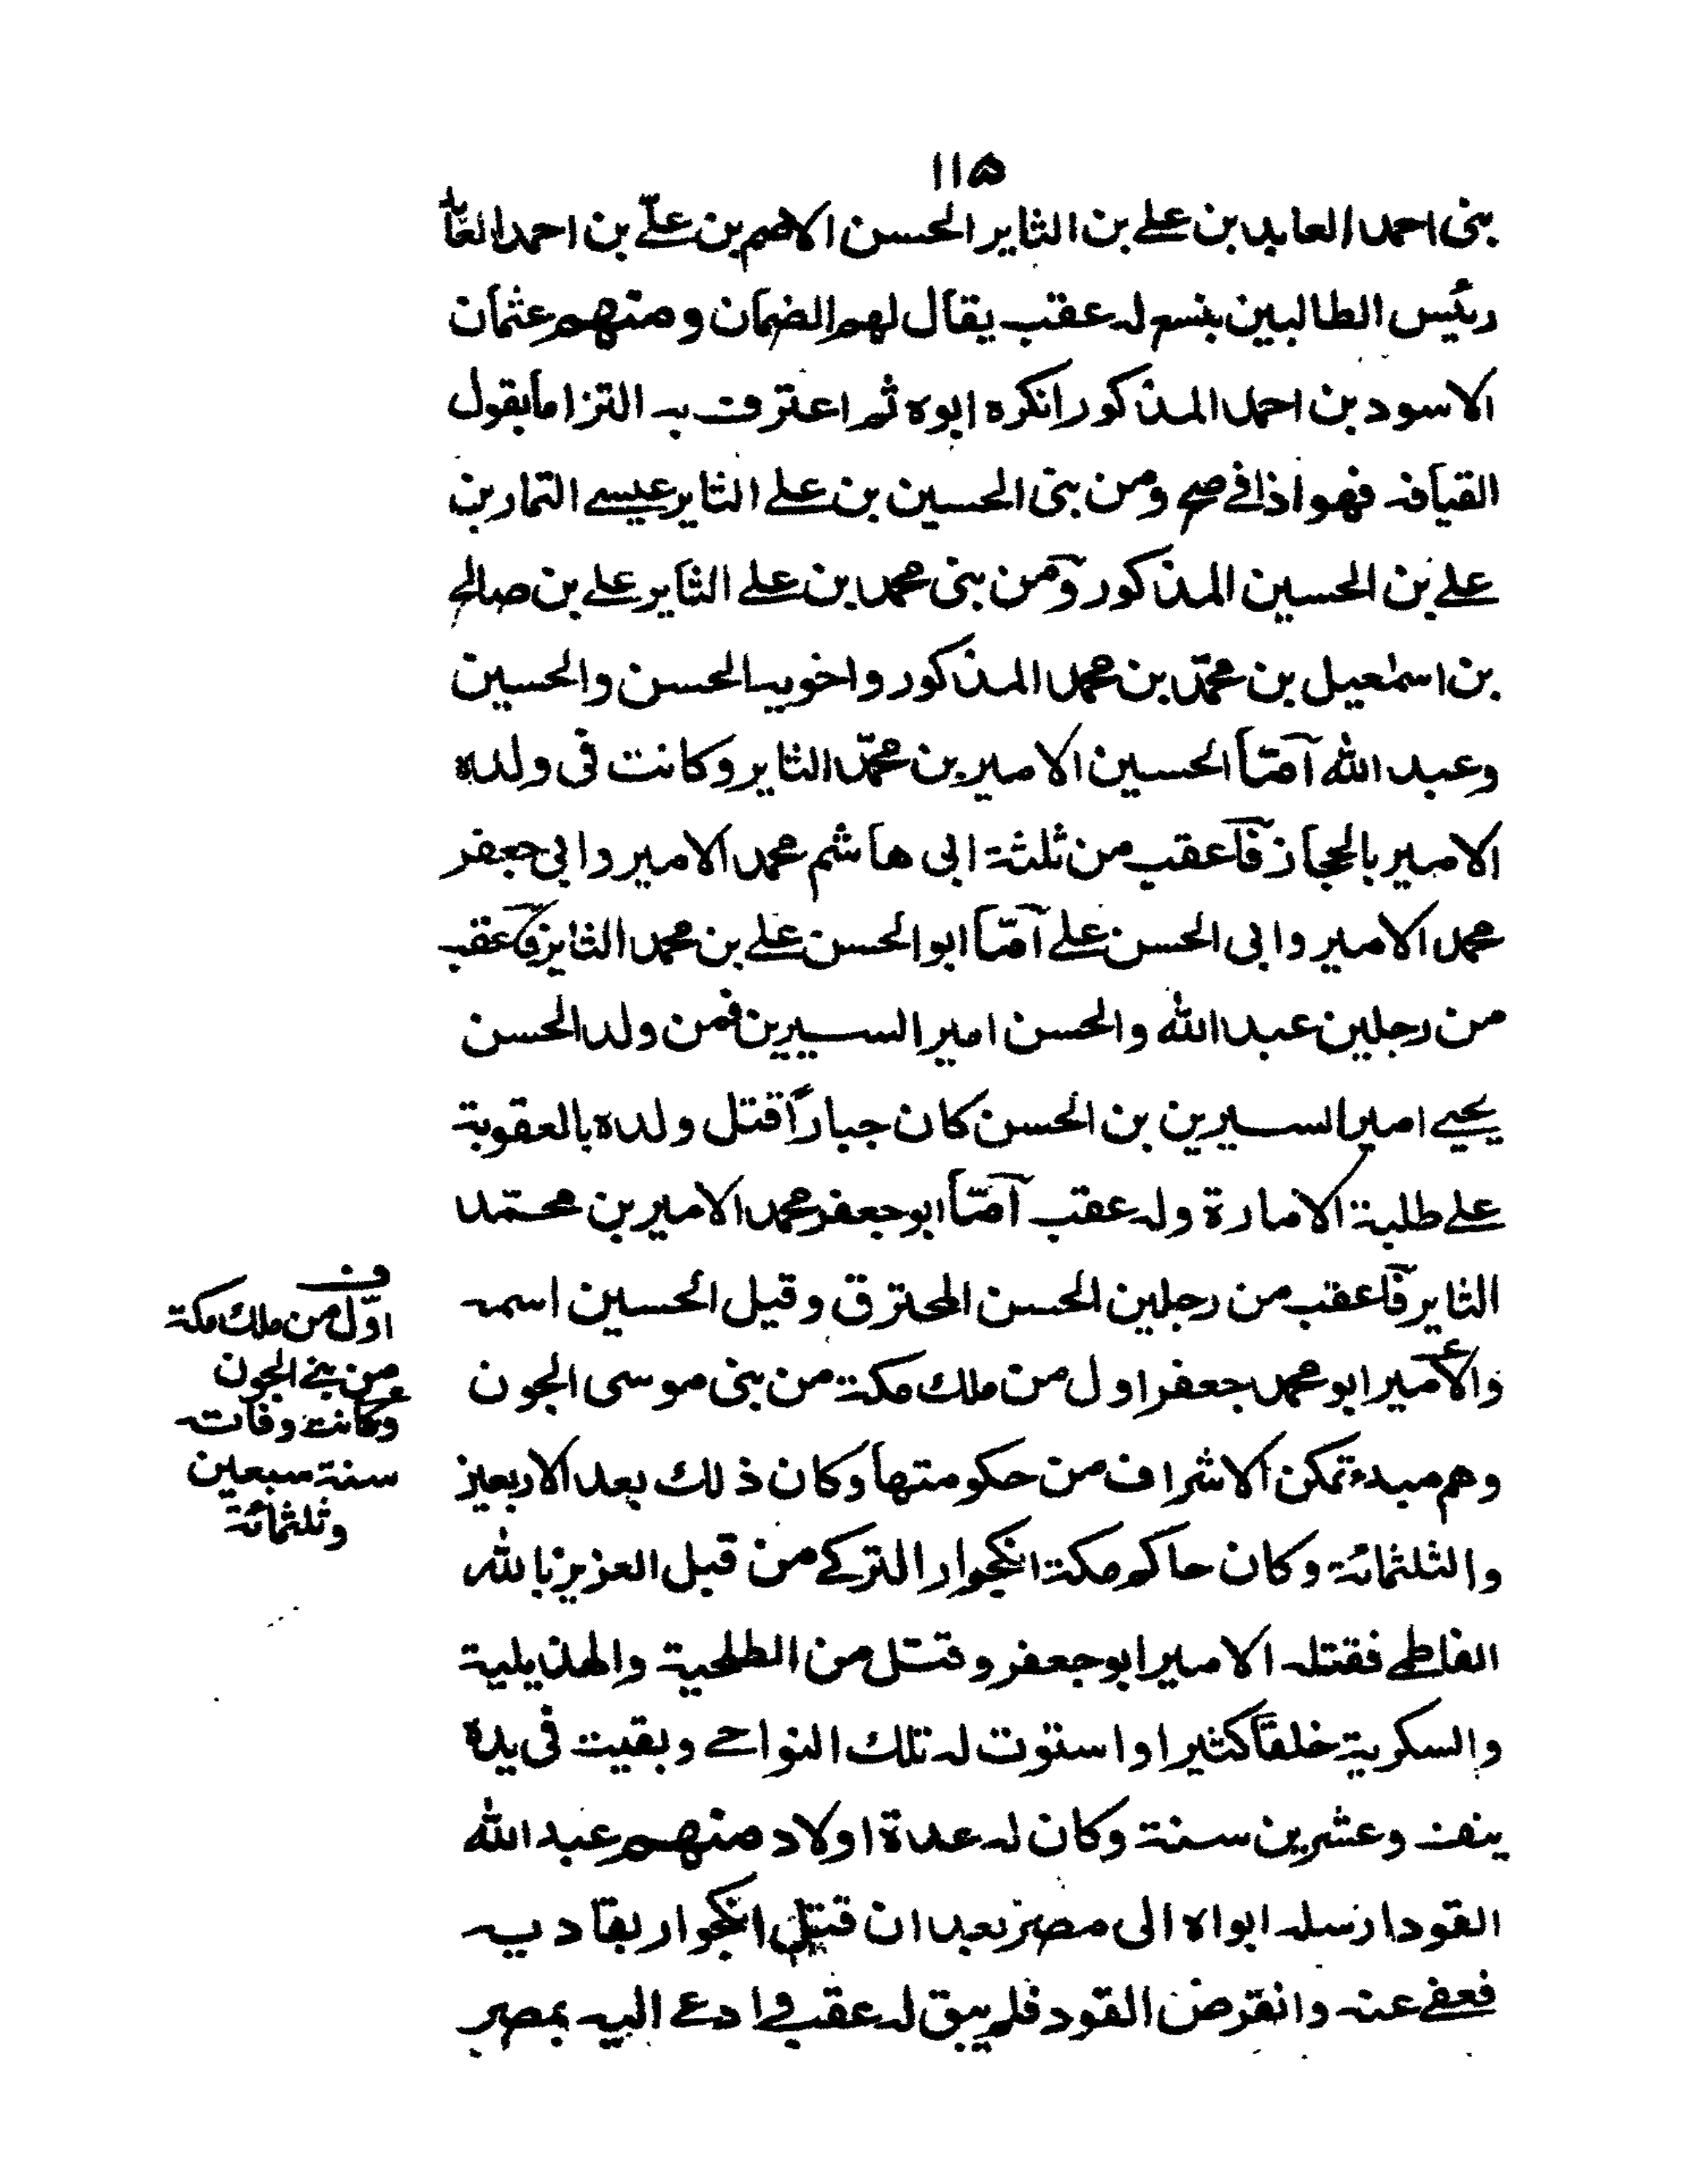 ١١۵
بنى احمد العابد بن على بن الثاير الحسن الاصم بن علىّ بن احمد العابد
رئيس الطالبين بنسع له عقب يقال لهم الضمان ومنهم عثمان
الاسود بن احمد المذكور انكره ابوه ثم اعترف به التزاما بقول
القيافه فهو اذا فى صح ومن بنى الحسين بن على الثاير عيسى التمار بن
على بن الحسين المذكور ومن بنى محمد بن على الثاير على بن صالح
بن اسمعيل بن محمّد بن محمد المذكور واخويه الحسن والحسين
وعبد الله امّا الحسين الامير بن محمّد الثاير وكانت فى ولده
الامير بالحجاز فاعقب من ثلثة ابى هاشم محمد الامير وابى جعفر
محمد الامير وابى الحسن على امّا ابو الحسن على بن محمد الثاير فاعقب
من رجلين عبد الله والحسن امير السيرين فمن ولد الحسن
يحيى امير السيرين بن الحسن كان جباراً قتل ولده بالعقوبة
على طلبة الامارة وله عقب امّا ابو جعفر محمد الامير بن محمّد
الثاير فاعقب من رجلين الحسن المحترق وقيل الحسين اسمه
والامير ابو محمد جعفر اول من ملك مكة من بنى موسى الجون
وهم مبدء تمكن الاشراف من حكومتها وكان ذلك بعد الاربعين
والثلثمائة وكان حاكم مكة انكجوار التركى من قبل العزيز بالله
الفاطمى فقتله الامير ابو جعفر وقتل من الطلحية والهذيلية
والسكرية خلقاً كثيرا واستوت له تلك النواحى وبقيت فى يده
ينف وعشرين سنة وكان له عدة اولاد منهم عبد الله
القود ارسله ابواه الى مصر بعد ان قتل انكجوار يقاد به
فعفى عنه وانقرض القود فلم يبق له عقب وادعى اليه بمصر
ف
اوّل من ملك مكة
من بنى الجون
وكانت وفاته
سنة سبعين
وثلثمائة